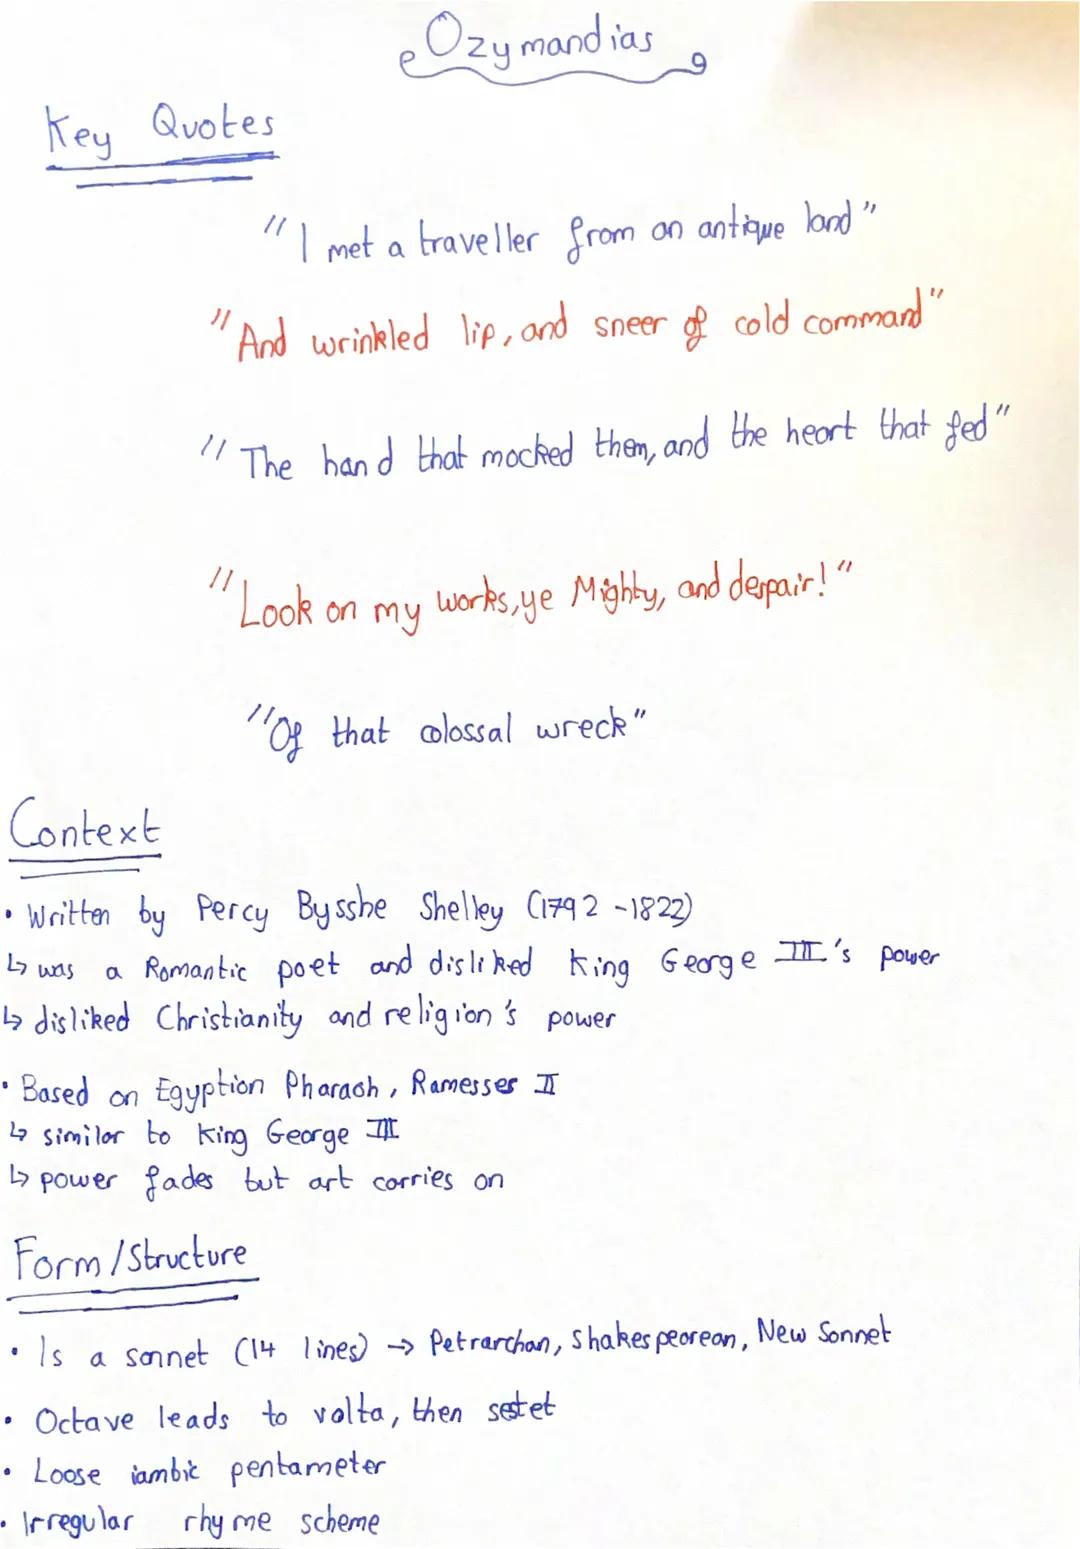 Ozymandias
Key Quotes
"I met a traveller from an antique land"
"And wrinkled lip, and sneer of cold command"
"The hand that mocked them, and the heart that fed"
"Look on my works, ye Mighty, and despair!"
"Of that colossal wreck"
Context
• Written by Percy Bysshe Shelley (1792-1822)
↳ was a Romantic poet and disliked King George III's power
↳ disliked Christianity and religion's power
• Based on Egyption Pharaoh, Ramesses II
↳ similar to King George III
↳ power fades but art carries on
Form/Structure
• Is a sonnet (14 lines) → Petrarchan, Shakespearean, New Sonnet
• Octave leads to volta, then sestet
• Loose iambic pentameter
• Irregular rhyme scheme